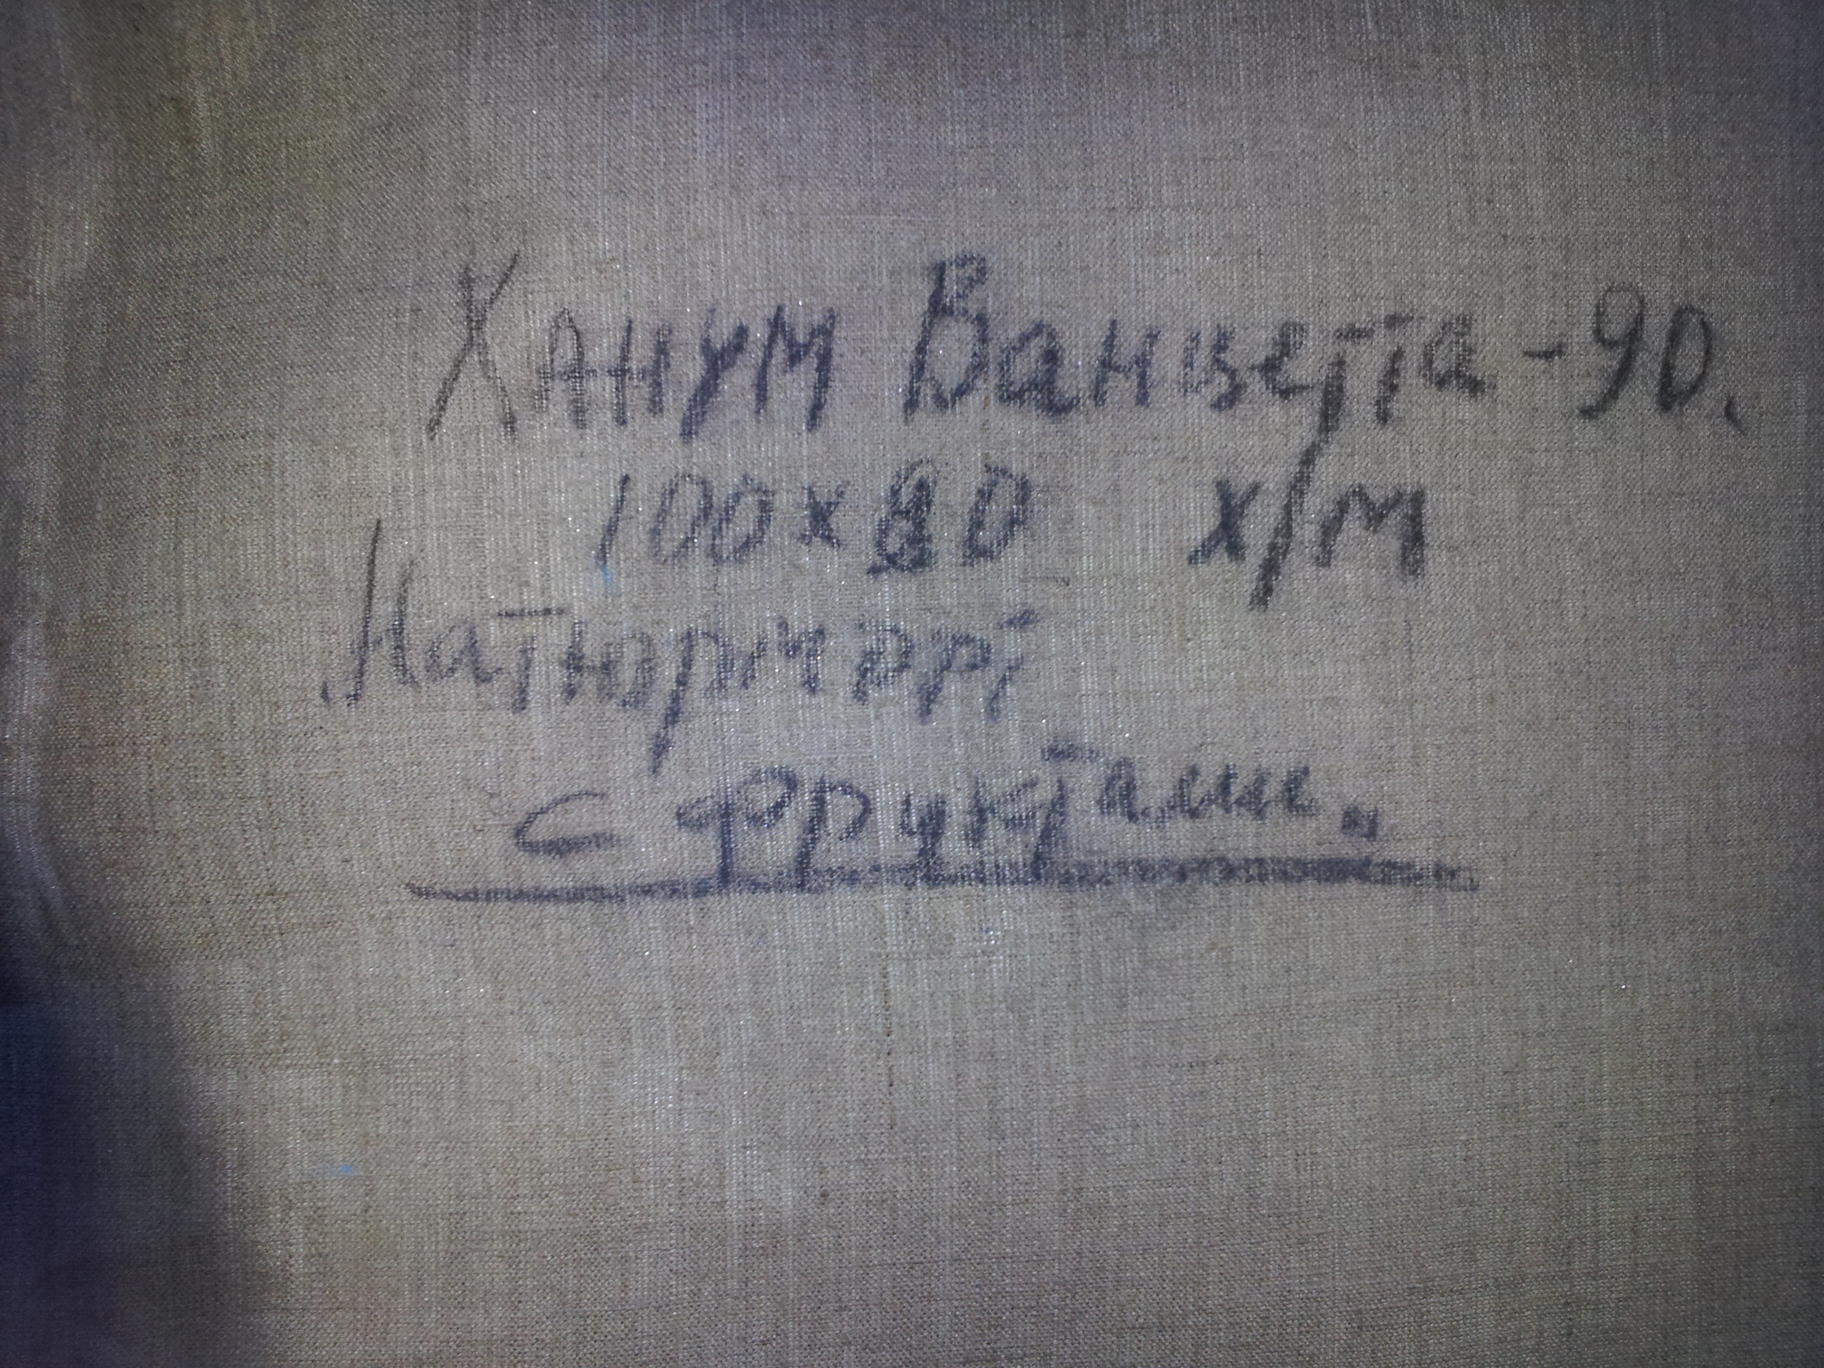 Ханум Ванцетта - 90.
100x80 х/м
Натюрморт
с фруктами.